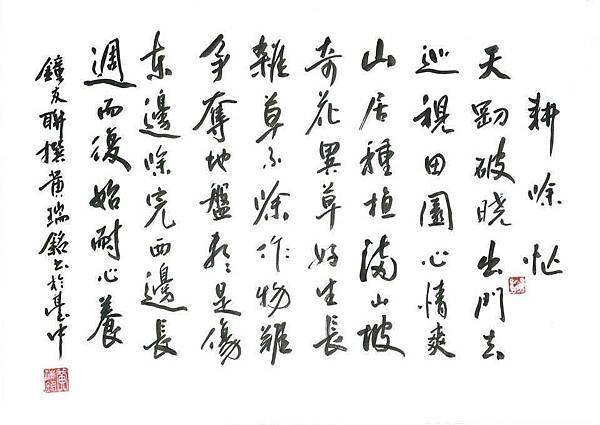 耕除忙
天剛破曉出門去
巡視田園心情爽
山居種植滿山坡
奇花異草好生長
雜草不除作物難
爭奪地盤是傷
東邊除完西邊長
週而復始耐心養
鐘友聯撰黃瑞銘書於臺中